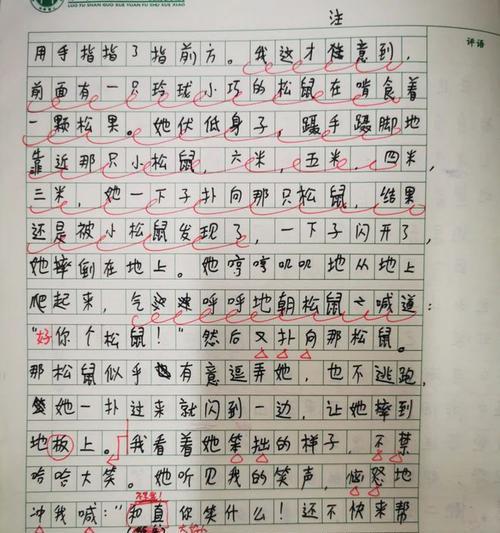 LUO YU SHAN GUO XUE YUAN FU SHU XIAO XUE
注
评语
用手指指了指前方。我这才注意到，
前面有一只玲珑小巧的松鼠在啃食着
一颗松果。她伏低身子，蹑手蹑脚地
靠近那只小松鼠，六米，五米，四米，
三米，她一下子扑向那只松鼠，结果
还是被小松鼠发现了，一下子闪开了，
她摔倒在地上。她哼哼叽叽地从地上
爬起来，气呼呼地朝松鼠喊道：
“好你个松鼠！”然后又扑向那松鼠。
那松鼠似乎有意逗弄她，也不逃跑，
等她一扑过来就闪到一边，让她摔到
地板上。我看着她笨拙的样子，不禁
哈哈大笑。她听见我的笑声，恼怒地
冲我喊：“和真你笑什么！还不快来帮